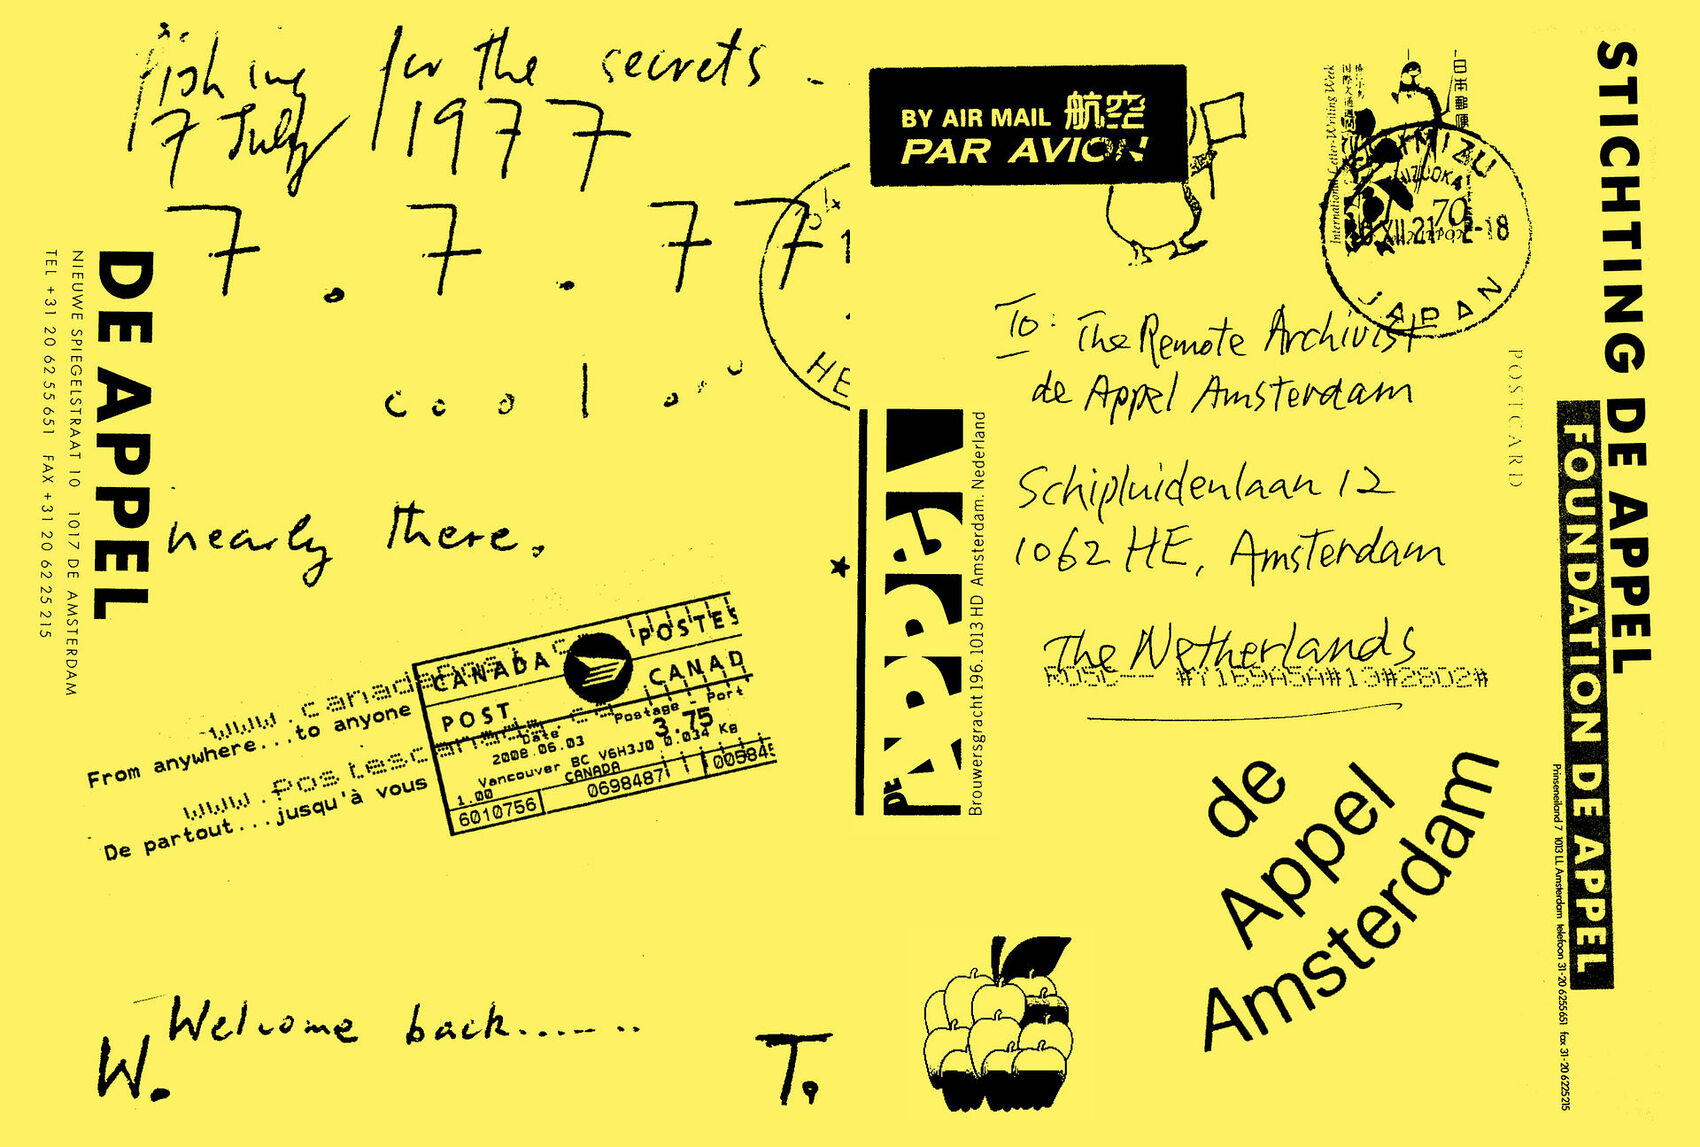 fishing for the secrets
7 July 1977
7 . 7 . 77
cool...
nearly there.
DE APPEL
NIEUWE SPIEGELSTRAAT 10 1017 DE AMSTERDAM
TEL +31 20 62 55 651 FAX +31 20 62 25 215
www.canadapost.ca
From anywhere...to anyone
www.postescanada.ca
De partout...jusqu'à vous
CANADA POSTES
POST CANAD
Postage - Port
Date 3.75
2008.06.03
Vancouver BC V6H3J0 0.034 Kg
1.00 CANADA
6010756 0698487 00584
Welcome back.......
W. T.
HE
BY AIR MAIL 航空
PAR AVION
International Letter-Writing Week
日本郵便
70
NIPPON
SHIMIZU
JAPAN
POSTCARD
To: The Remote Archivist
de Appel Amsterdam
Schipluidenlaan 12
1062 HE, Amsterdam
The Netherlands
DE APPEL
Brouwersgracht 196. 1013 HD Amsterdam. Nederland
de
Appel
Amsterdam
STICHTING DE APPEL
FOUNDATION DE APPEL
Prinseneiland 7 1013 LL Amsterdam telefoon 31-20 6255651 fax 31-20 6225215